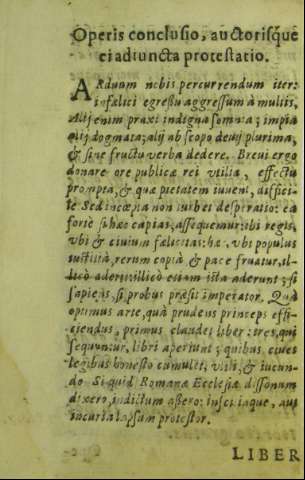 Operis conclusio, auctorisque
ei adiuncta protestatio.
ARduum nobis percurrendum iter:
infælici egressu aggressum à multis,
Alij enim praxi indigna somnia; impia
alij dogmata; alij ab scopo devij plurima,
& sine fructu verba dedere. Brevi ergo
donare ore publicæ rei vtilia, effectu
prompta, & quæ pietatem iuvent, difficile
Sed incœpta non turbet desperatio: ea
forte si hæc capias, assequemur: ibi regis,
vbi & civium fælicitas: hæ, vbi populus
iustitiâ, rerum copiâ & pace fruatur, il-
licò aderit: illicò etiam ista aderunt; si
sapiens, si probus præsit imperator. Quâ
optimus arte, quâ prudens princeps effi-
ciendus, primus claudet liber: tres, qui
sequuntur, libri aperiunt; quibus cives
legibus honesto cumulet, vtili, & iucun-
do Si quid Romanæ Ecclesiæ dissonum
dixero, indictum assero: insci  íaque, aut
incuria lapsum protestor.
LIBER